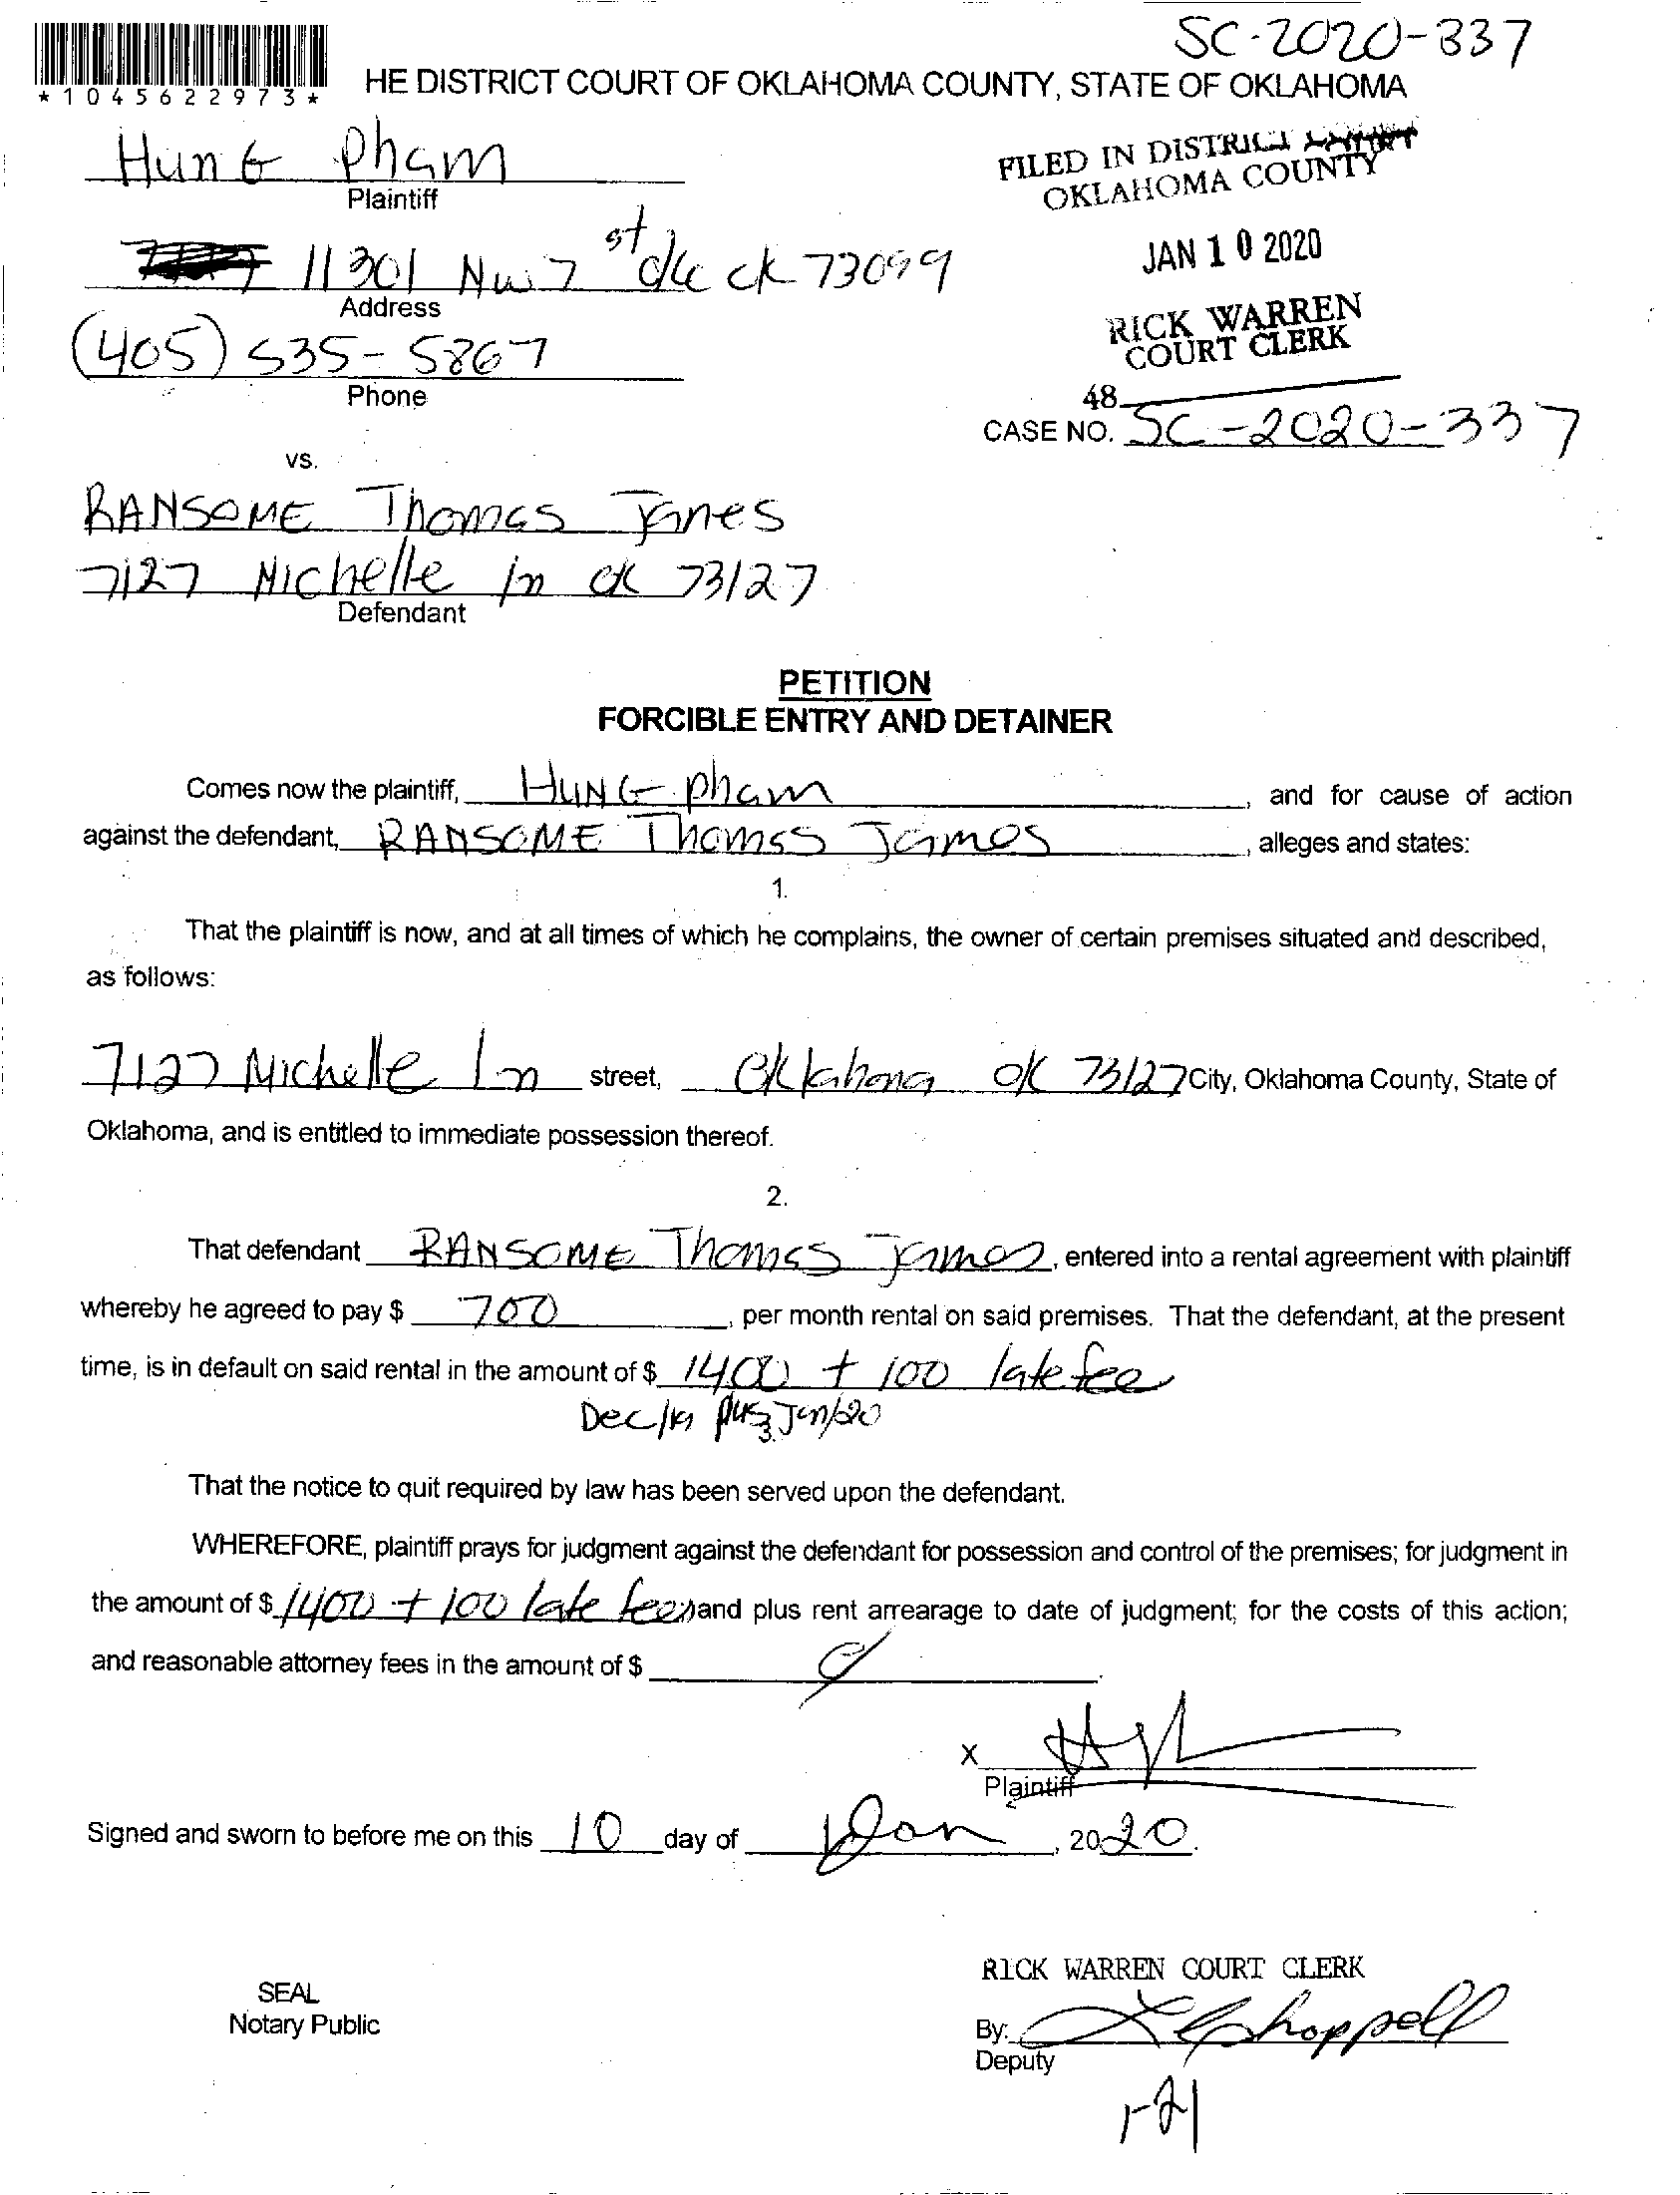 SC-2020-337
*1045622973*
HE DISTRICT COURT OF OKLAHOMA COUNTY, STATE OF OKLAHOMA
HunG Pham
Plaintiff
FILED IN DISTRICT COURT
OKLAHOMA COUNTY
JAN 10 2020
RICK WARREN
COURT CLERK
48
11301 Nw 7 st okc ok 73099
Address
(405) 535-5867
Phone
CASE NO. SC-2020-337
vs.
RANSOME Thomas James
7127 Michelle ln ok 73127
Defendant
PETITION
FORCIBLE ENTRY AND DETAINER
Comes now the plaintiff, HUNG pham, and for cause of action
against the defendant, RANSOME Thomas James, alleges and states:
1.
That the plaintiff is now, and at all times of which he complains, the owner of certain premises situated and described,
as follows:
7127 Michelle Ln street, Oklahoma OK 73127 City, Oklahoma County, State of
Oklahoma, and is entitled to immediate possession thereof.
2.
That defendant RANSOME Thomas James, entered into a rental agreement with plaintiff
whereby he agreed to pay $ 700, per month rental on said premises. That the defendant, at the present
time, is in default on said rental in the amount of $ 1400 + 100 late fee
Dec/19 plus Jan/20
3.
That the notice to quit required by law has been served upon the defendant.
WHEREFORE, plaintiff prays for judgment against the defendant for possession and control of the premises; for judgment in
the amount of $ 1400 + 100 late fees and plus rent arrearage to date of judgment; for the costs of this action;
and reasonable attorney fees in the amount of $
X
Plaintiff
Signed and sworn to before me on this 10 day of Jan, 2020.
RICK WARREN COURT CLERK
SEAL
Notary Public
By:
Deputy
1-21